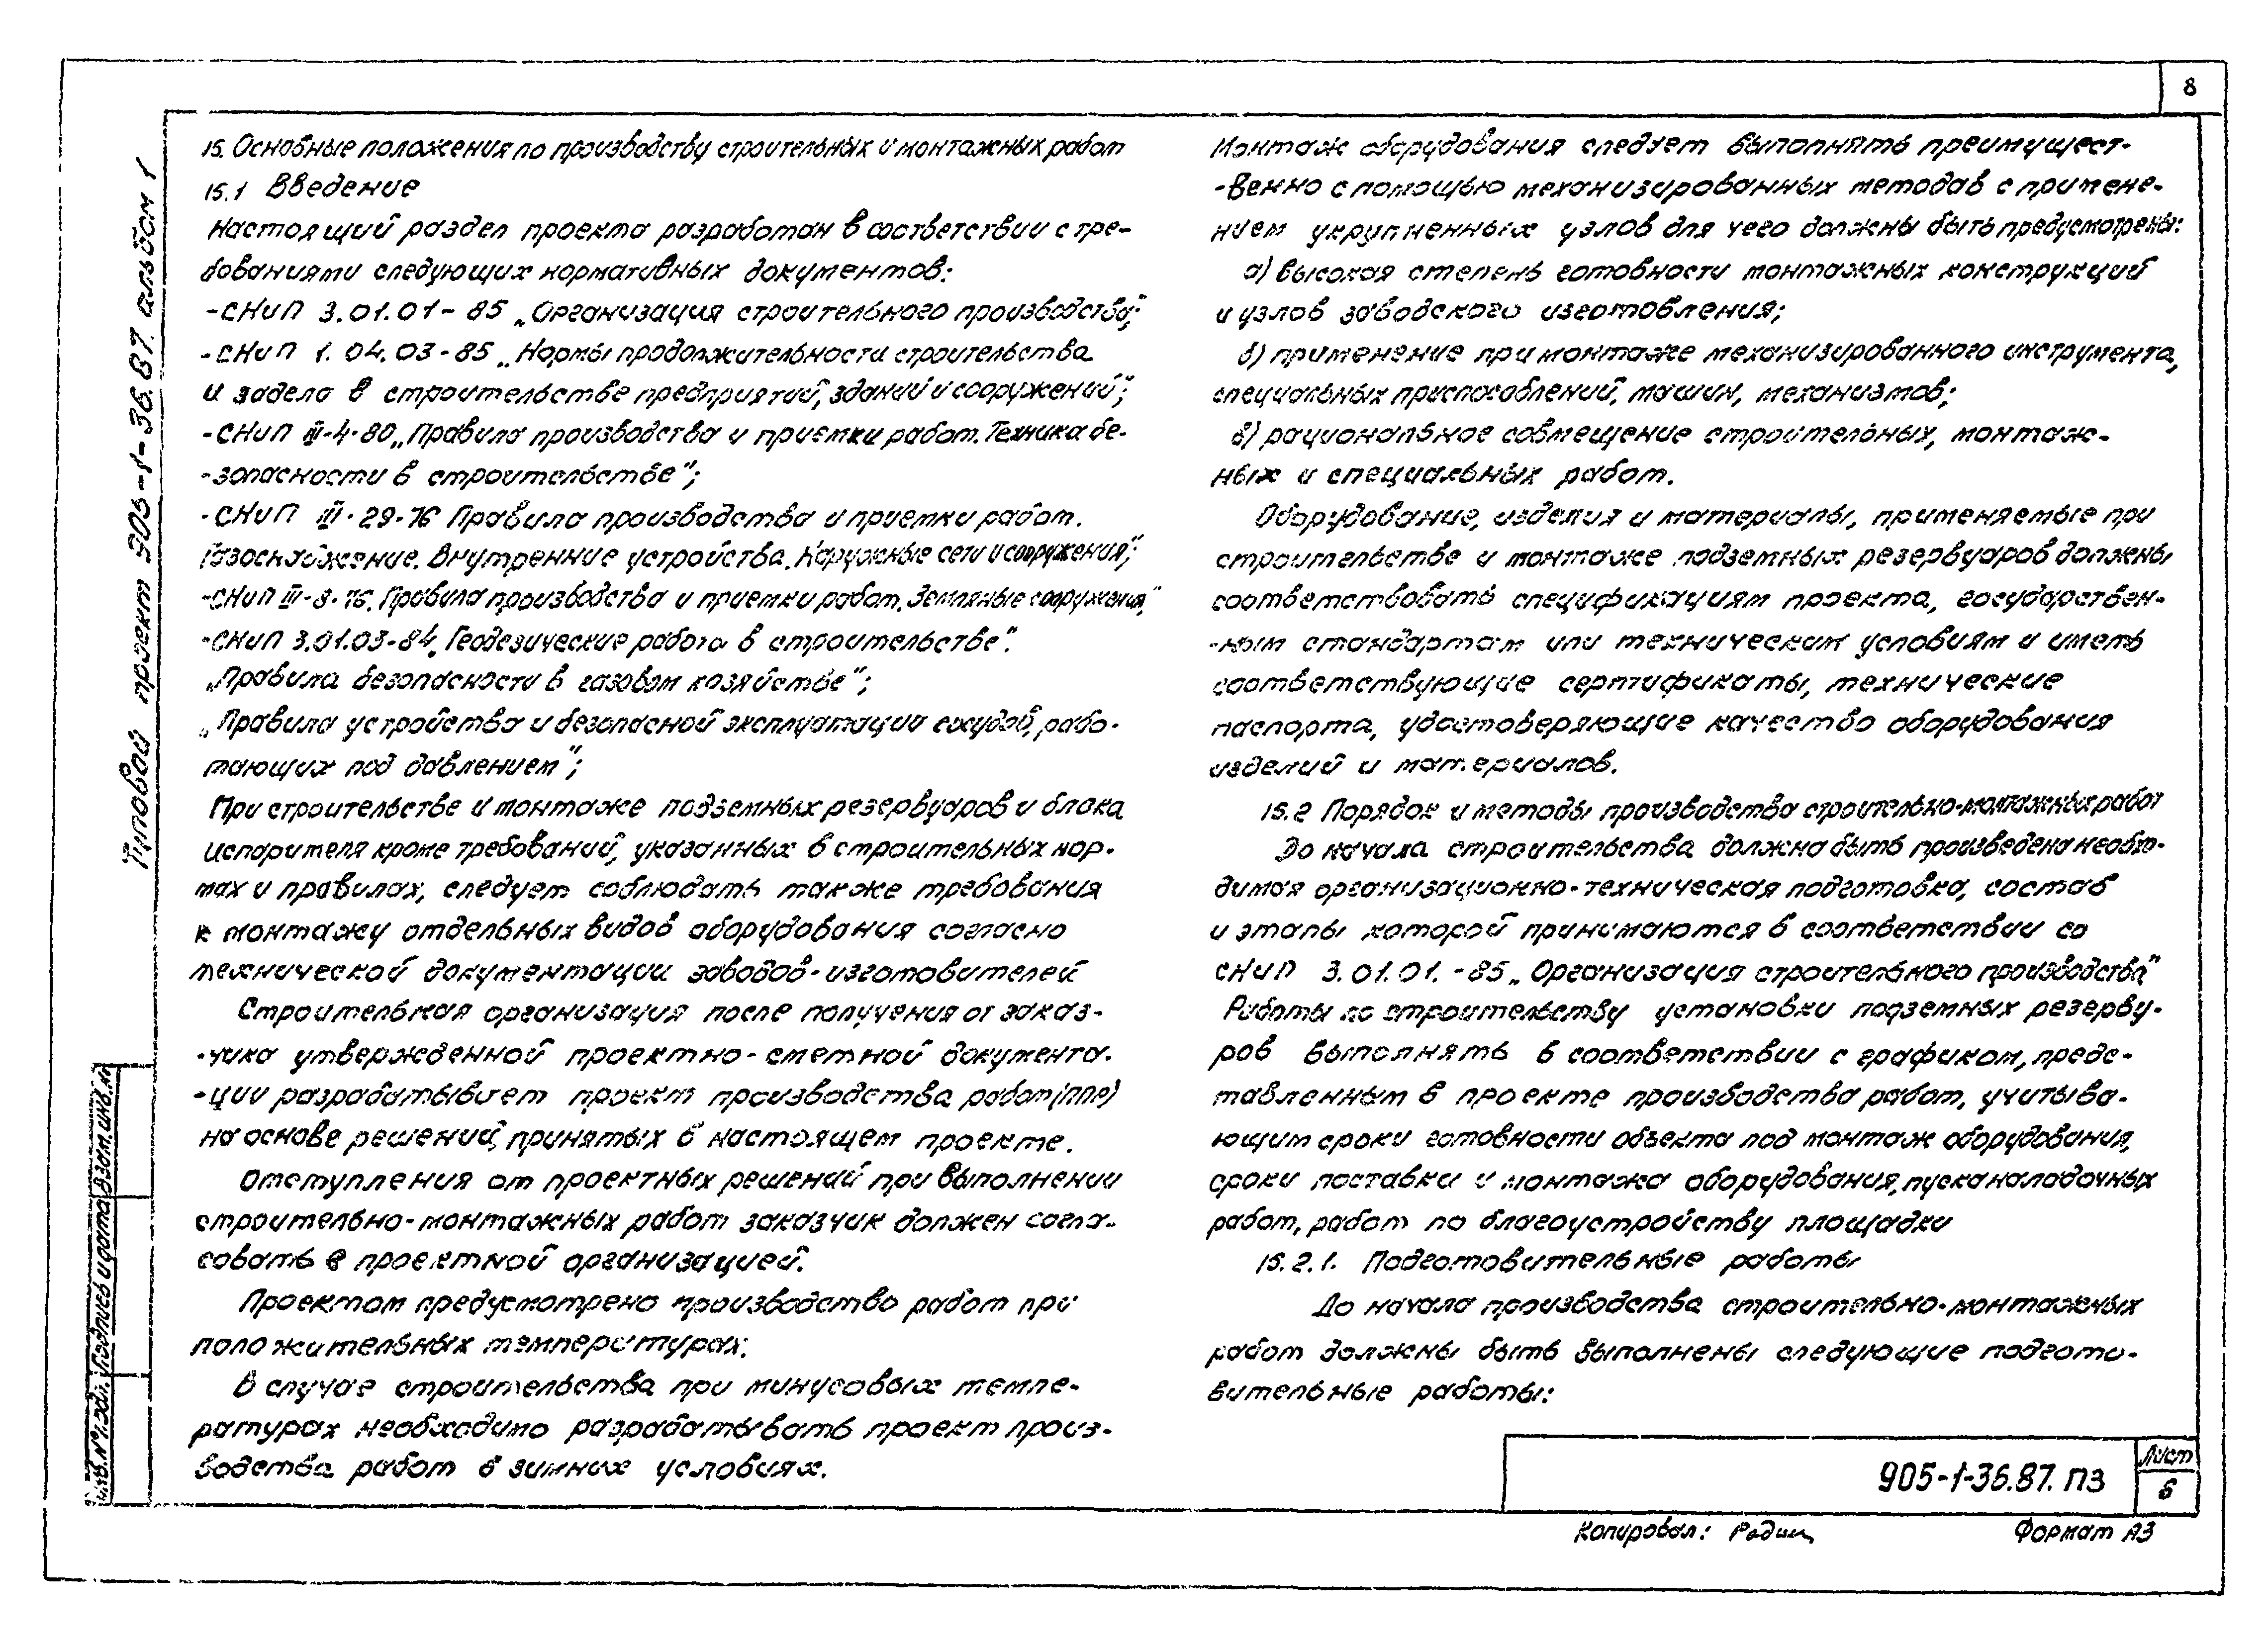 8
Типовой проект 905-1-36.87. альбом 1
15. Основные положения по производству строительных и монтажных работ
15.1 Введение
Настоящий раздел проекта разработан в соответствии с тре-
бованиями следующих нормативных документов:
-СНиП 3.01.01-85 „Организация строительного производства";
-СНиП 1.04.03-85 „Нормы продолжительности строительства
и задела в строительстве предприятий, зданий и сооружений";
-СНиП III-4-80 „Правила производства и приемки работ. Техника бе-
-зопасности в строительстве";
-СНиП III-29-76 Правила производства и приемки работ.
Газоснабжение. Внутренние устройства. Наружные сети и сооружения";
-СНиП III-8-76. Правила производства и приемки работ. Земляные сооружения,"
-СНиП 3.01.03-84 „Геодезические работа в строительстве".
„Правила безопасности в газовом хозяйстве";
„Правила устройства и безопасной эксплуатации сосудов, рабо-
тающих под давлением";
При строительстве и монтаже подземных резервуаров и блока
испарителя кроме требований, указанных в строительных нор-
мах и правилах, следует соблюдать также требования
к монтажу отдельных видов оборудования согласно
технической документации заводов-изготовителей
Строительная организация после получения от заказ-
-чика утвержденной проектно-сметной документа-
-ции разрабатывает проект производства работ (ППР)
на основе решений, принятых в настоящем проекте.
Отступления от проектных решений при выполнении
строительно-монтажных работ заказчик должен согла-
совать с проектной организацией.
Проектом предусмотрено производство работ при
положительных температурах.
В случае строительства при минусовых темпе-
ратурах необходимо разрабатывать проект произ-
водства работ в зимних условиях.
Монтаж оборудования следует выполнять преимущест-
-венно с помощью механизированных методов с примене-
нием укрупненных узлов для чего должны быть предусмотрены:
а) высокая степень готовности монтажных конструкций
и узлов заводского изготовления;
б) применение при монтаже механизированного инструмента,
специальных приспособлений, машин, механизмов;
в) рациональное совмещение строительных, монтаж-
ных и специальных работ.
Оборудование, изделия и материалы, применяемые при
строительстве и монтаже подземных резервуаров должны
соответствовать спецификациям проекта, государствен-
-ным стандартам или техническим условиям и иметь
соответствующие сертификаты, технические
паспорта, удостоверяющие качество оборудования
изделий и материалов.
15.2 Порядок и методы производства строительно-монтажных работ
До начала строительства должна быть произведена необхо-
димая организационно-техническая подготовка, состав
и этапы которой принимаются в соответствии со
СНиП 3.01.01.-85 „Организация строительного производства"
Работы по строительству установки подземных резерву-
ров выполнять в соответствии с графиком, предс-
тавленным в проекте производства работ, учитыва-
ющим сроки готовности объекта под монтаж оборудования,
сроки поставки и монтажа оборудования, пусканаладочных
работ, работ по благоустройству площадки
15.2.1. Подготовительные работы
До начала производства строительно-монтажных
работ должны быть выполнены следующие подгото-
вительные работы:
Инв.№подл. Подпись и дата Взам.инв.№
905-1-36.87. ПЗ
Лист
6
Копировал:
Формат А3